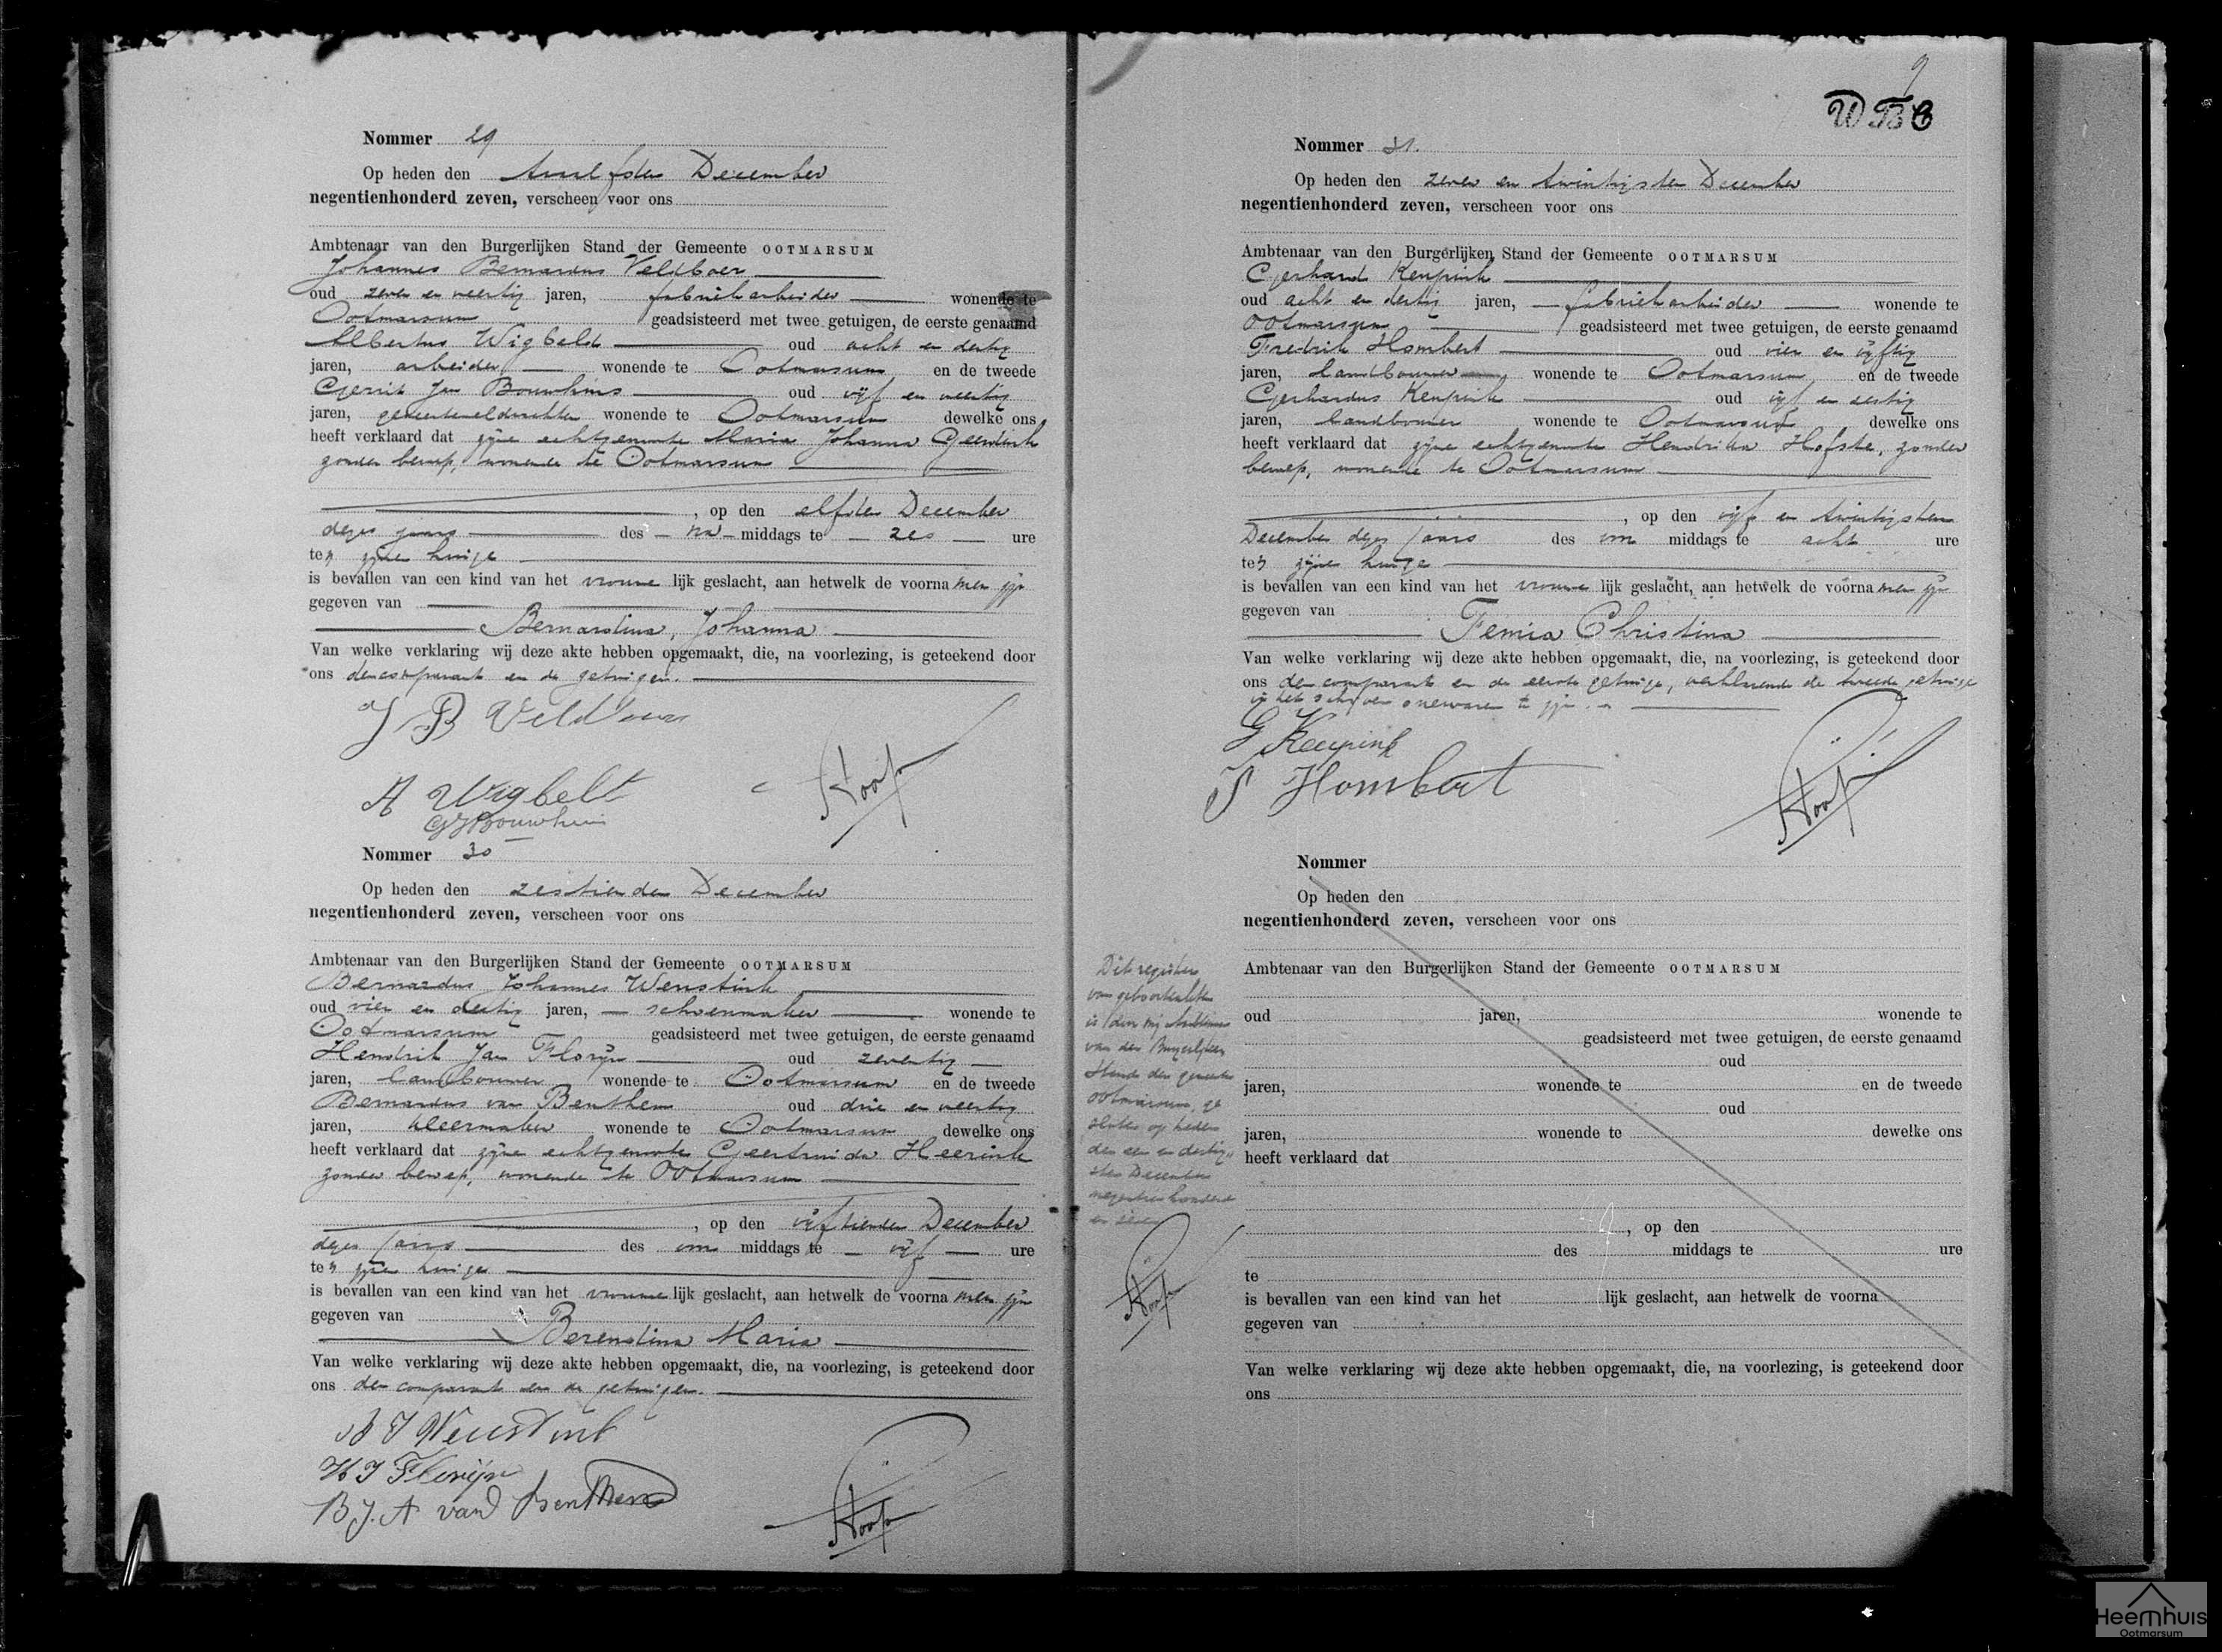 Nommer 29
Op heden den twaalfden December
negentienhonderd zeven, verscheen voor ons
Ambtenaar van den Burgerlijken Stand der Gemeente OOTMARSUM
Johannes Bernardus Veldboer
oud zeven en veertig jaren, fabriekarbeider wonende te
Ootmarsum geadsisteerd met twee getuigen, de eerste genaamd
Albertus Wigbeld oud acht en dertig
jaren, arbeider wonende te Ootmarsum en de tweede
Gerrit Jan Bouwhuis oud vijf en veertig
jaren, gemeenteveldwachter wonende te Ootmarsum dewelke ons
heeft verklaard dat zijne echtgenoote Maria Johanna Geerdink
zonder beroep, wonende te Ootmarsum
, op den elfden December
dezes jaars des na middags te zes ure
ten zijne huize
is bevallen van een kind van het vrouwelijk geslacht, aan hetwelk de voornamen zijn
gegeven van
Bernardina, Johanna
Van welke verklaring wij deze akte hebben opgemaakt, die, na voorlezing, is geteekend door
ons den comparant en de getuigen.
J B Veldboer
A Wigbelt
GJ Bouwhuis
Nommer 30
Op heden den zestienden December
negentienhonderd zeven, verscheen voor ons
Ambtenaar van den Burgerlijken Stand der Gemeente OOTMARSUM
Bernardus Johannes Wenstink
oud vier en dertig jaren, schoenmaker wonende te
Ootmarsum geadsisteerd met twee getuigen, de eerste genaamd
Hendrik Jan Florijn oud zeventig
jaren, landbouwer wonende te Ootmarsum en de tweede
Bernardus van Benthem oud drie en veertig
jaren, kleermaker wonende te Ootmarsum dewelke ons
heeft verklaard dat zijne echtgenoote Geertruida Heerink
zonder beroep, wonende te Ootmarsum
, op den vijftienden December
dezes jaars des voor middags te vijf ure
ten zijne huize
is bevallen van een kind van het vrouwelijk geslacht, aan hetwelk de voornamen zijn
gegeven van
Berendina Maria
Van welke verklaring wij deze akte hebben opgemaakt, die, na voorlezing, is geteekend door
ons den comparant en de getuigen.
B J Wenstink
H J Florijn
B.J.A van Benthem
9
Nommer 31.
Op heden den zeven en twintigsten December
negentienhonderd zeven, verscheen voor ons
Ambtenaar van den Burgerlijken Stand der Gemeente OOTMARSUM
Gerhard Keupink
oud acht en dertig jaren, fabriekarbeider wonende te
Ootmarsum geadsisteerd met twee getuigen, de eerste genaamd
Fredrik Hombert oud vier en vijftig
jaren, landbouwer wonende te Ootmarsum en de tweede
Gerhardus Keupink oud vijf en zestig
jaren, landbouwer wonende te Ootmarsum dewelke ons
heeft verklaard dat zijne echtgenoote Hendrika Hofste, zonder
beroep, wonende te Ootmarsum
, op den vijf en twintigsten
December dezes jaars des voor middags te acht ure
ten zijnen huize
is bevallen van een kind van het vrouwelijk geslacht, aan hetwelk de voornamen zijn
gegeven van
Femia Christina
Van welke verklaring wij deze akte hebben opgemaakt, die, na voorlezing, is geteekend door
ons den comparant en de eerste getuige, verklarende de tweede getuige
in het schrijven onervaren te zijn.
G Keupink
F Hombert
Nommer
Op heden den
negentienhonderd zeven, verscheen voor ons
Ambtenaar van den Burgerlijken Stand der Gemeente OOTMARSUM
oud jaren, wonende te
geadsisteerd met twee getuigen, de eerste genaamd
oud
jaren, wonende te en de tweede
oud
jaren, wonende te dewelke ons
heeft verklaard dat
, op den
des middags te ure
te
is bevallen van een kind van het lijk geslacht, aan hetwelk de voorna
gegeven van
Van welke verklaring wij deze akte hebben opgemaakt, die, na voorlezing, is geteekend door
ons
Dit register
van geboorteakten
is door mij Ambtenaar
van den Burgerlijken
Stand der gemeente
Ootmarsum, ge
sloten op heden
den een en dertig
sten December
negentienhonderd
en zeven
Heemhuis
Ootmarsum